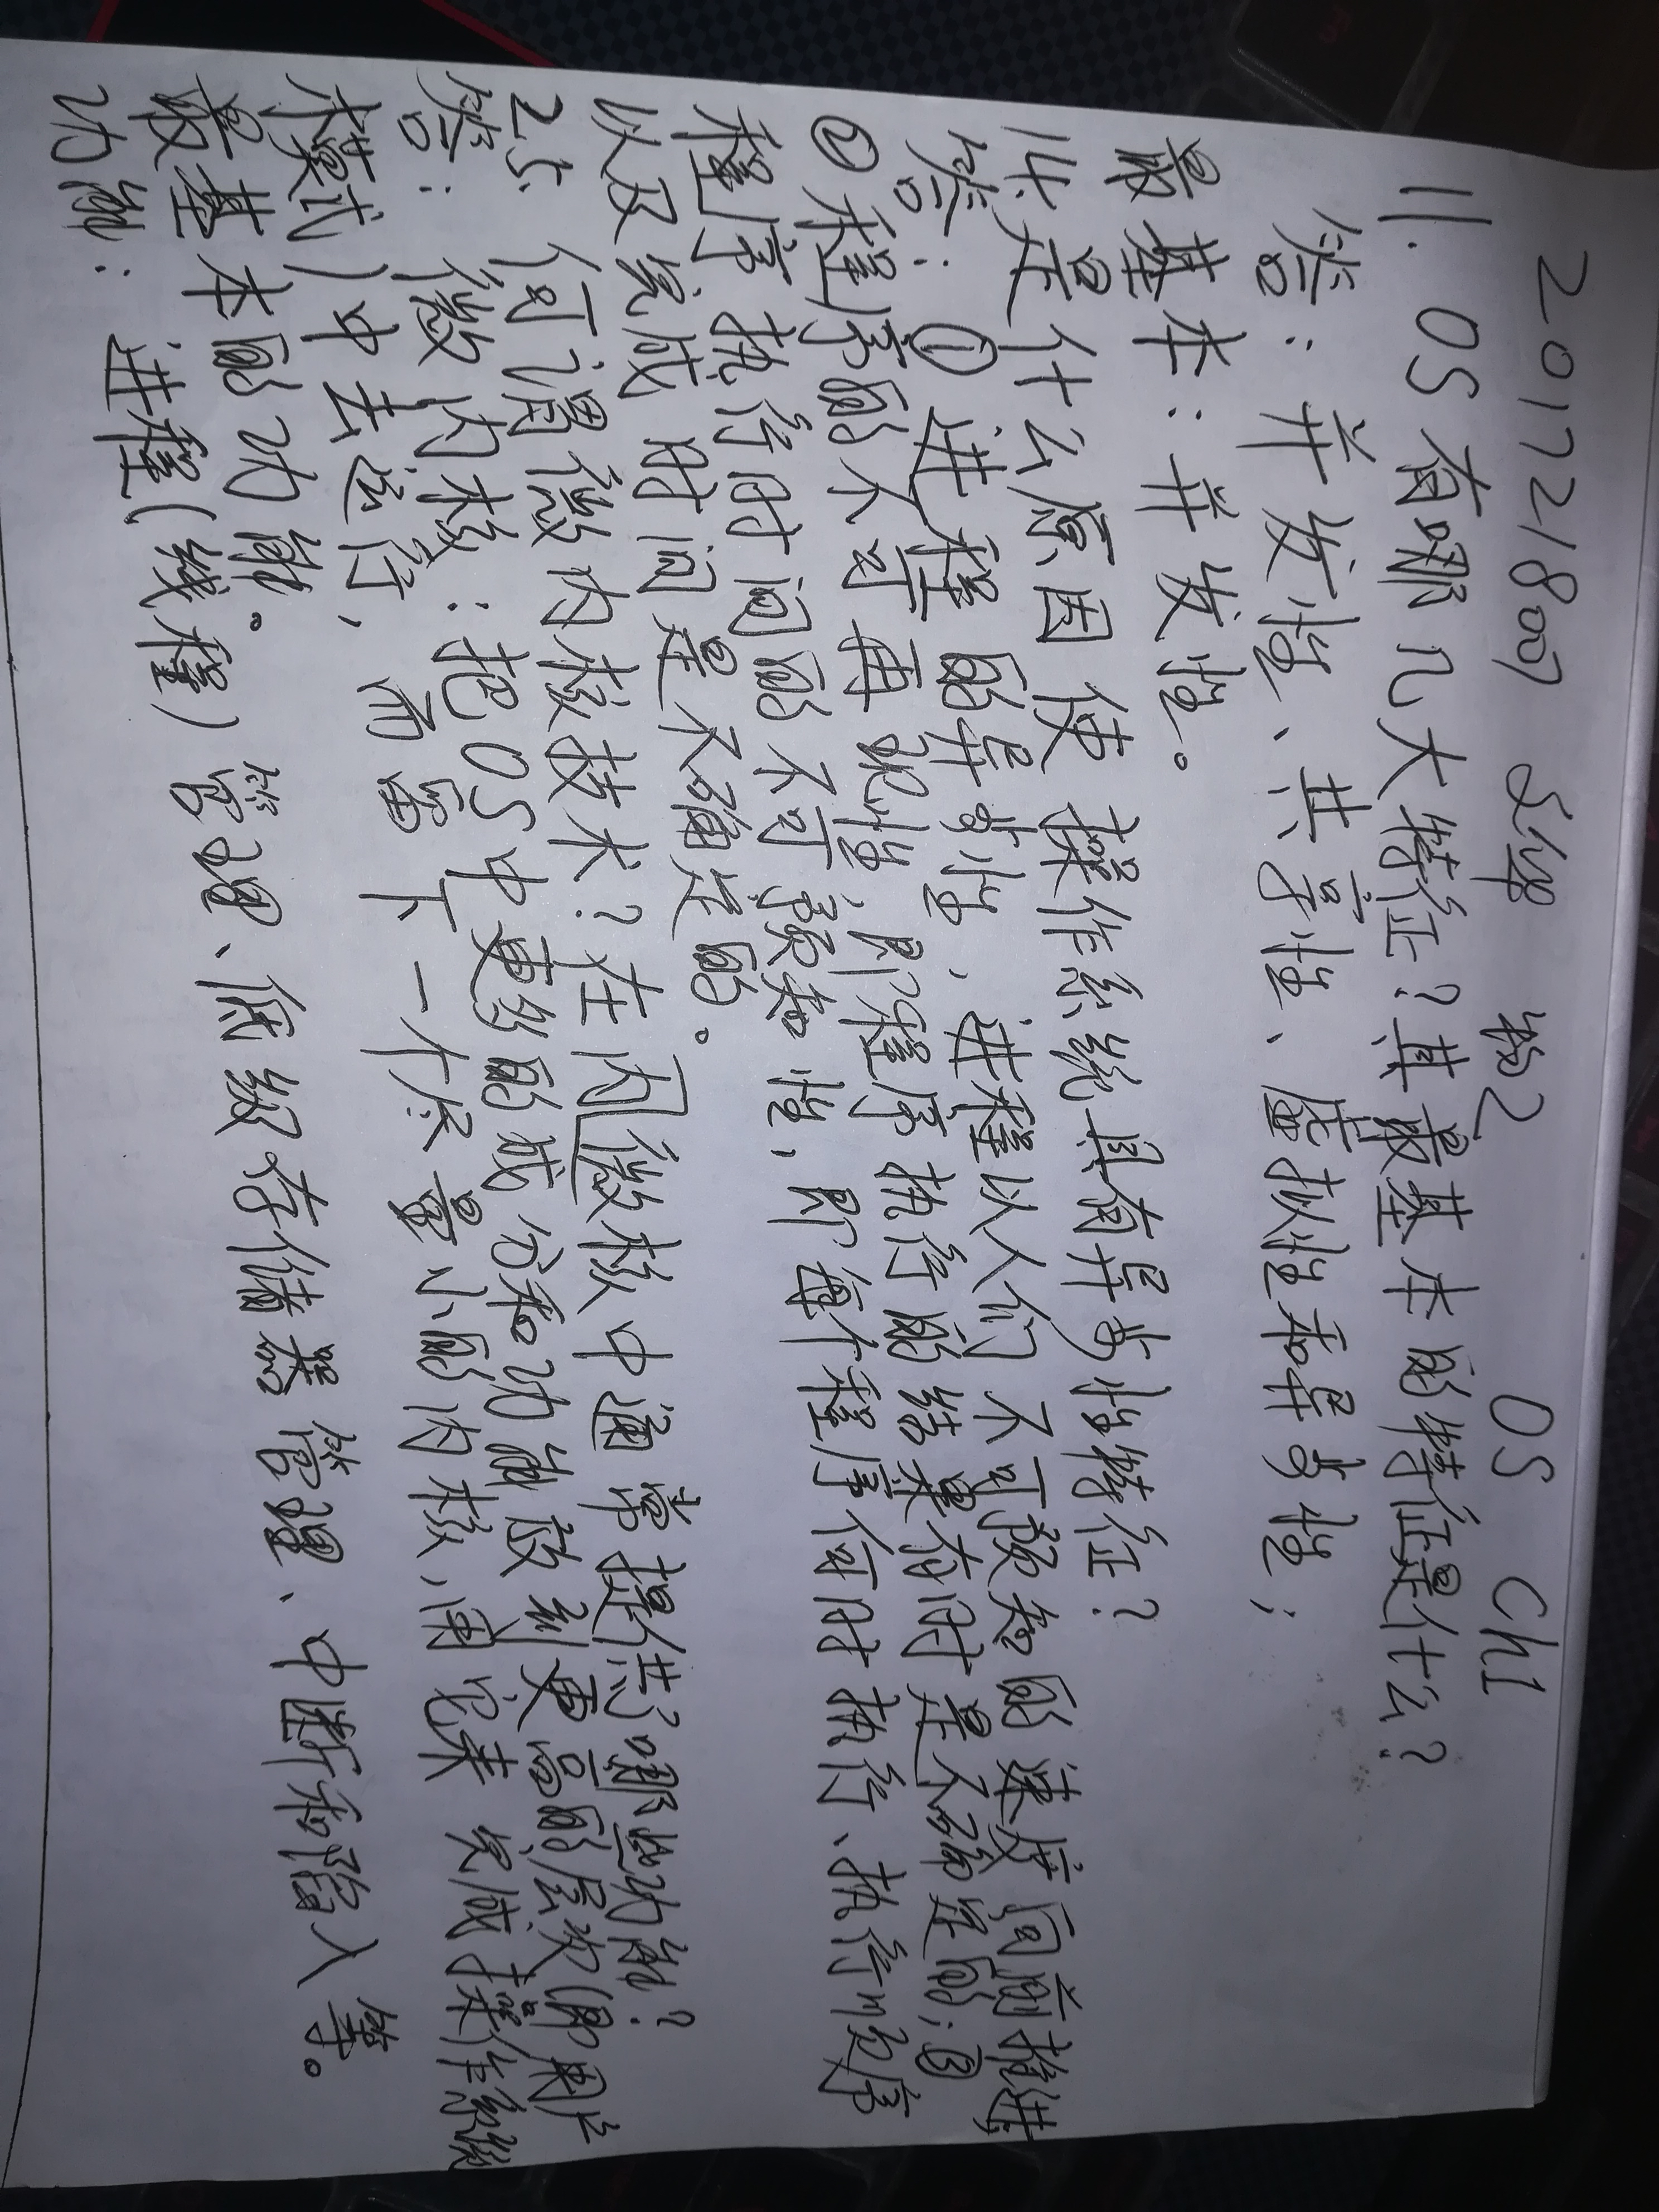 2017218007 文华 物2 OS Ch1
11. OS有哪几大特征?其最基本的特征是什么?
答:并发性、共享性、虚拟性和异步性;
最基本:并发性。
14.是什么原因使操作系统具有异步性特征?
答:①进程的异步性,进程以人们不可预知的速度向前推进;
②程序的不可再现性,即程序执行的结果有时是不确定的;③
程序执行时间的不可预知性,即每个程序何时执行、执行顺序
以及完成时间是不确定的。
25.何谓微内核技术?在内微核中通常提供了哪些功能?
答:微内核:把OS中更多的成分和功能放到更高的层次(即用户
模式)中去运行,而留下一个尽量小的内核,用它来完成操作系统
最基本的功能。
功能:进程(线程)管理、低级存储器管理、中断和陷入等。